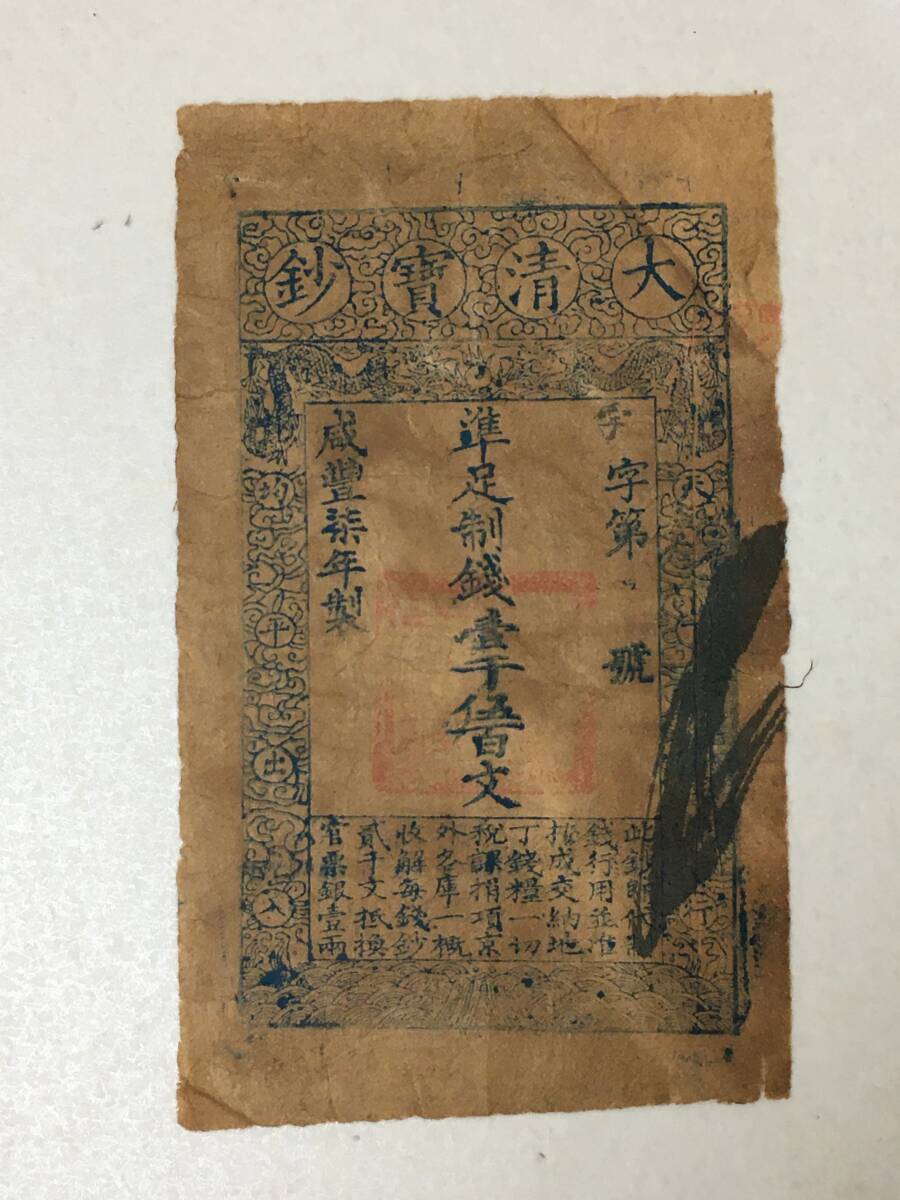 大清寶鈔
天
行
字第
號
準足制錢壹千伍百文
咸豐柒年製
均平出入
此鈔即代
錢行用並准
按成交納地
丁錢糧一切
稅課捐項京
外各庫一概
收解每錢鈔
貳千文抵換
官票銀壹兩